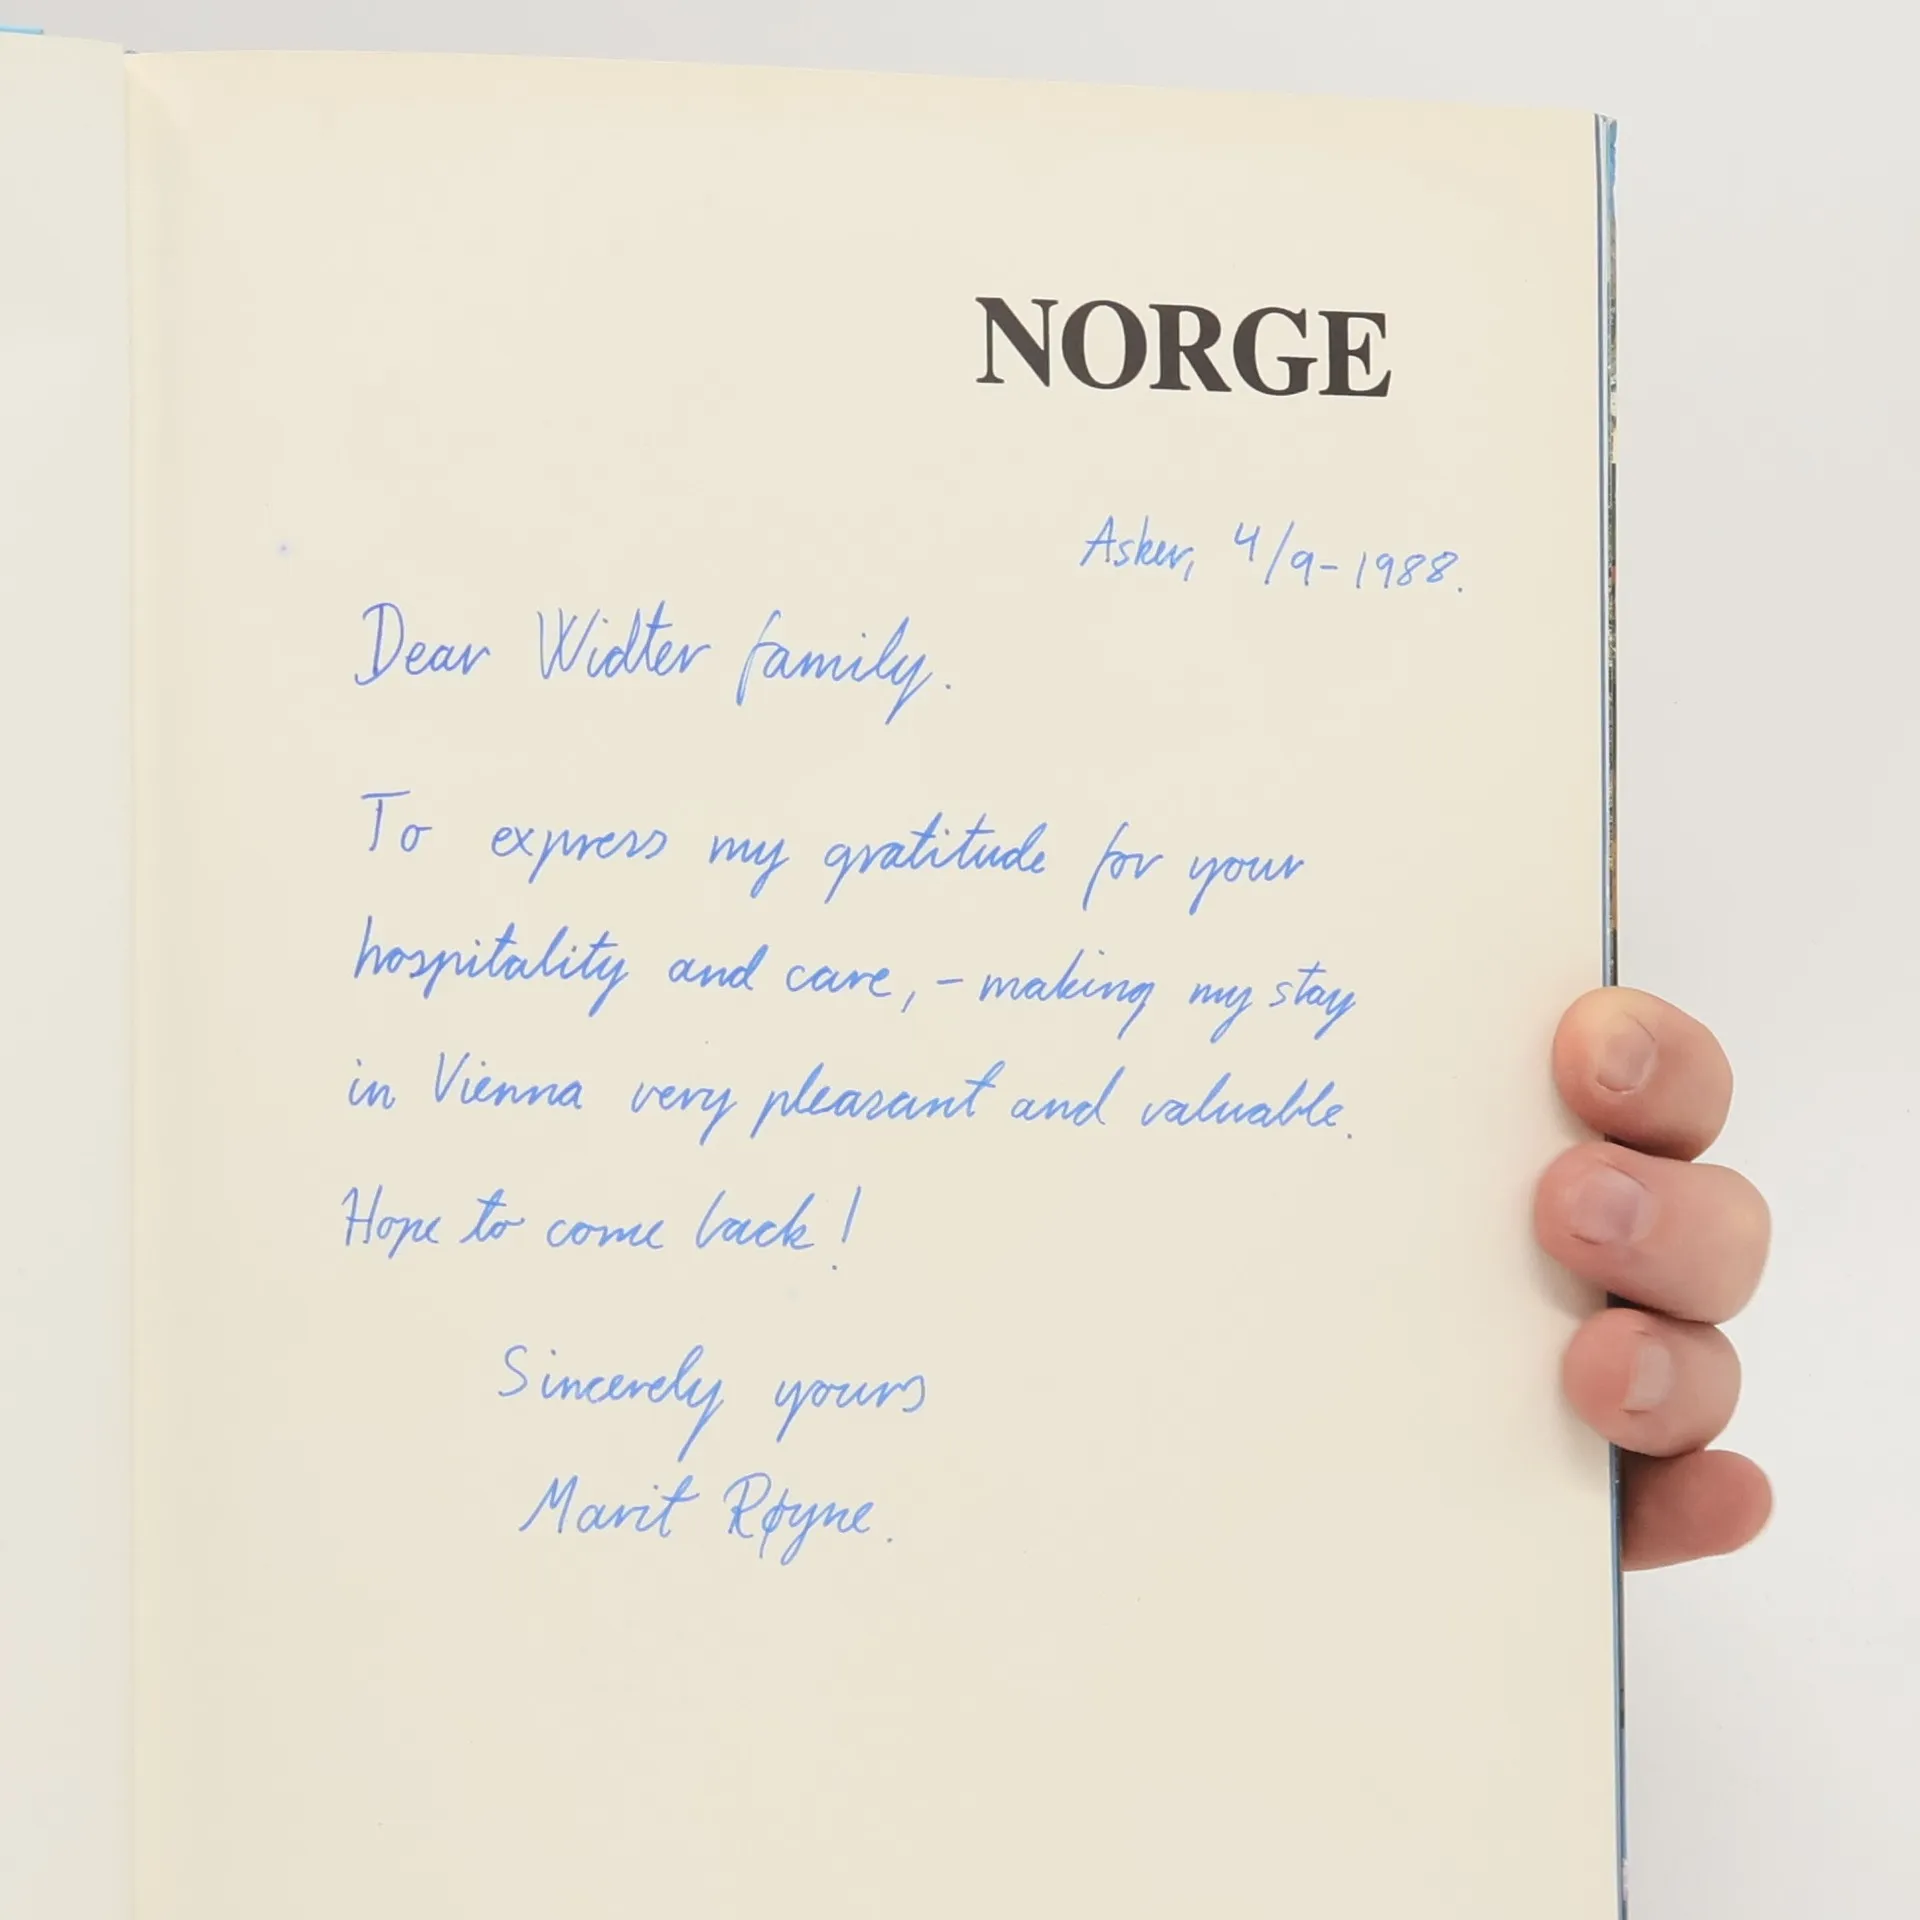 NORGE
Asker, 4/9-1988.
Dear Widter family.
To express my gratitude for your
hospitality and care, - making my stay
in Vienna very pleasant and valuable.
Hope to come back!
Sincerely yours
Marit Røyne.